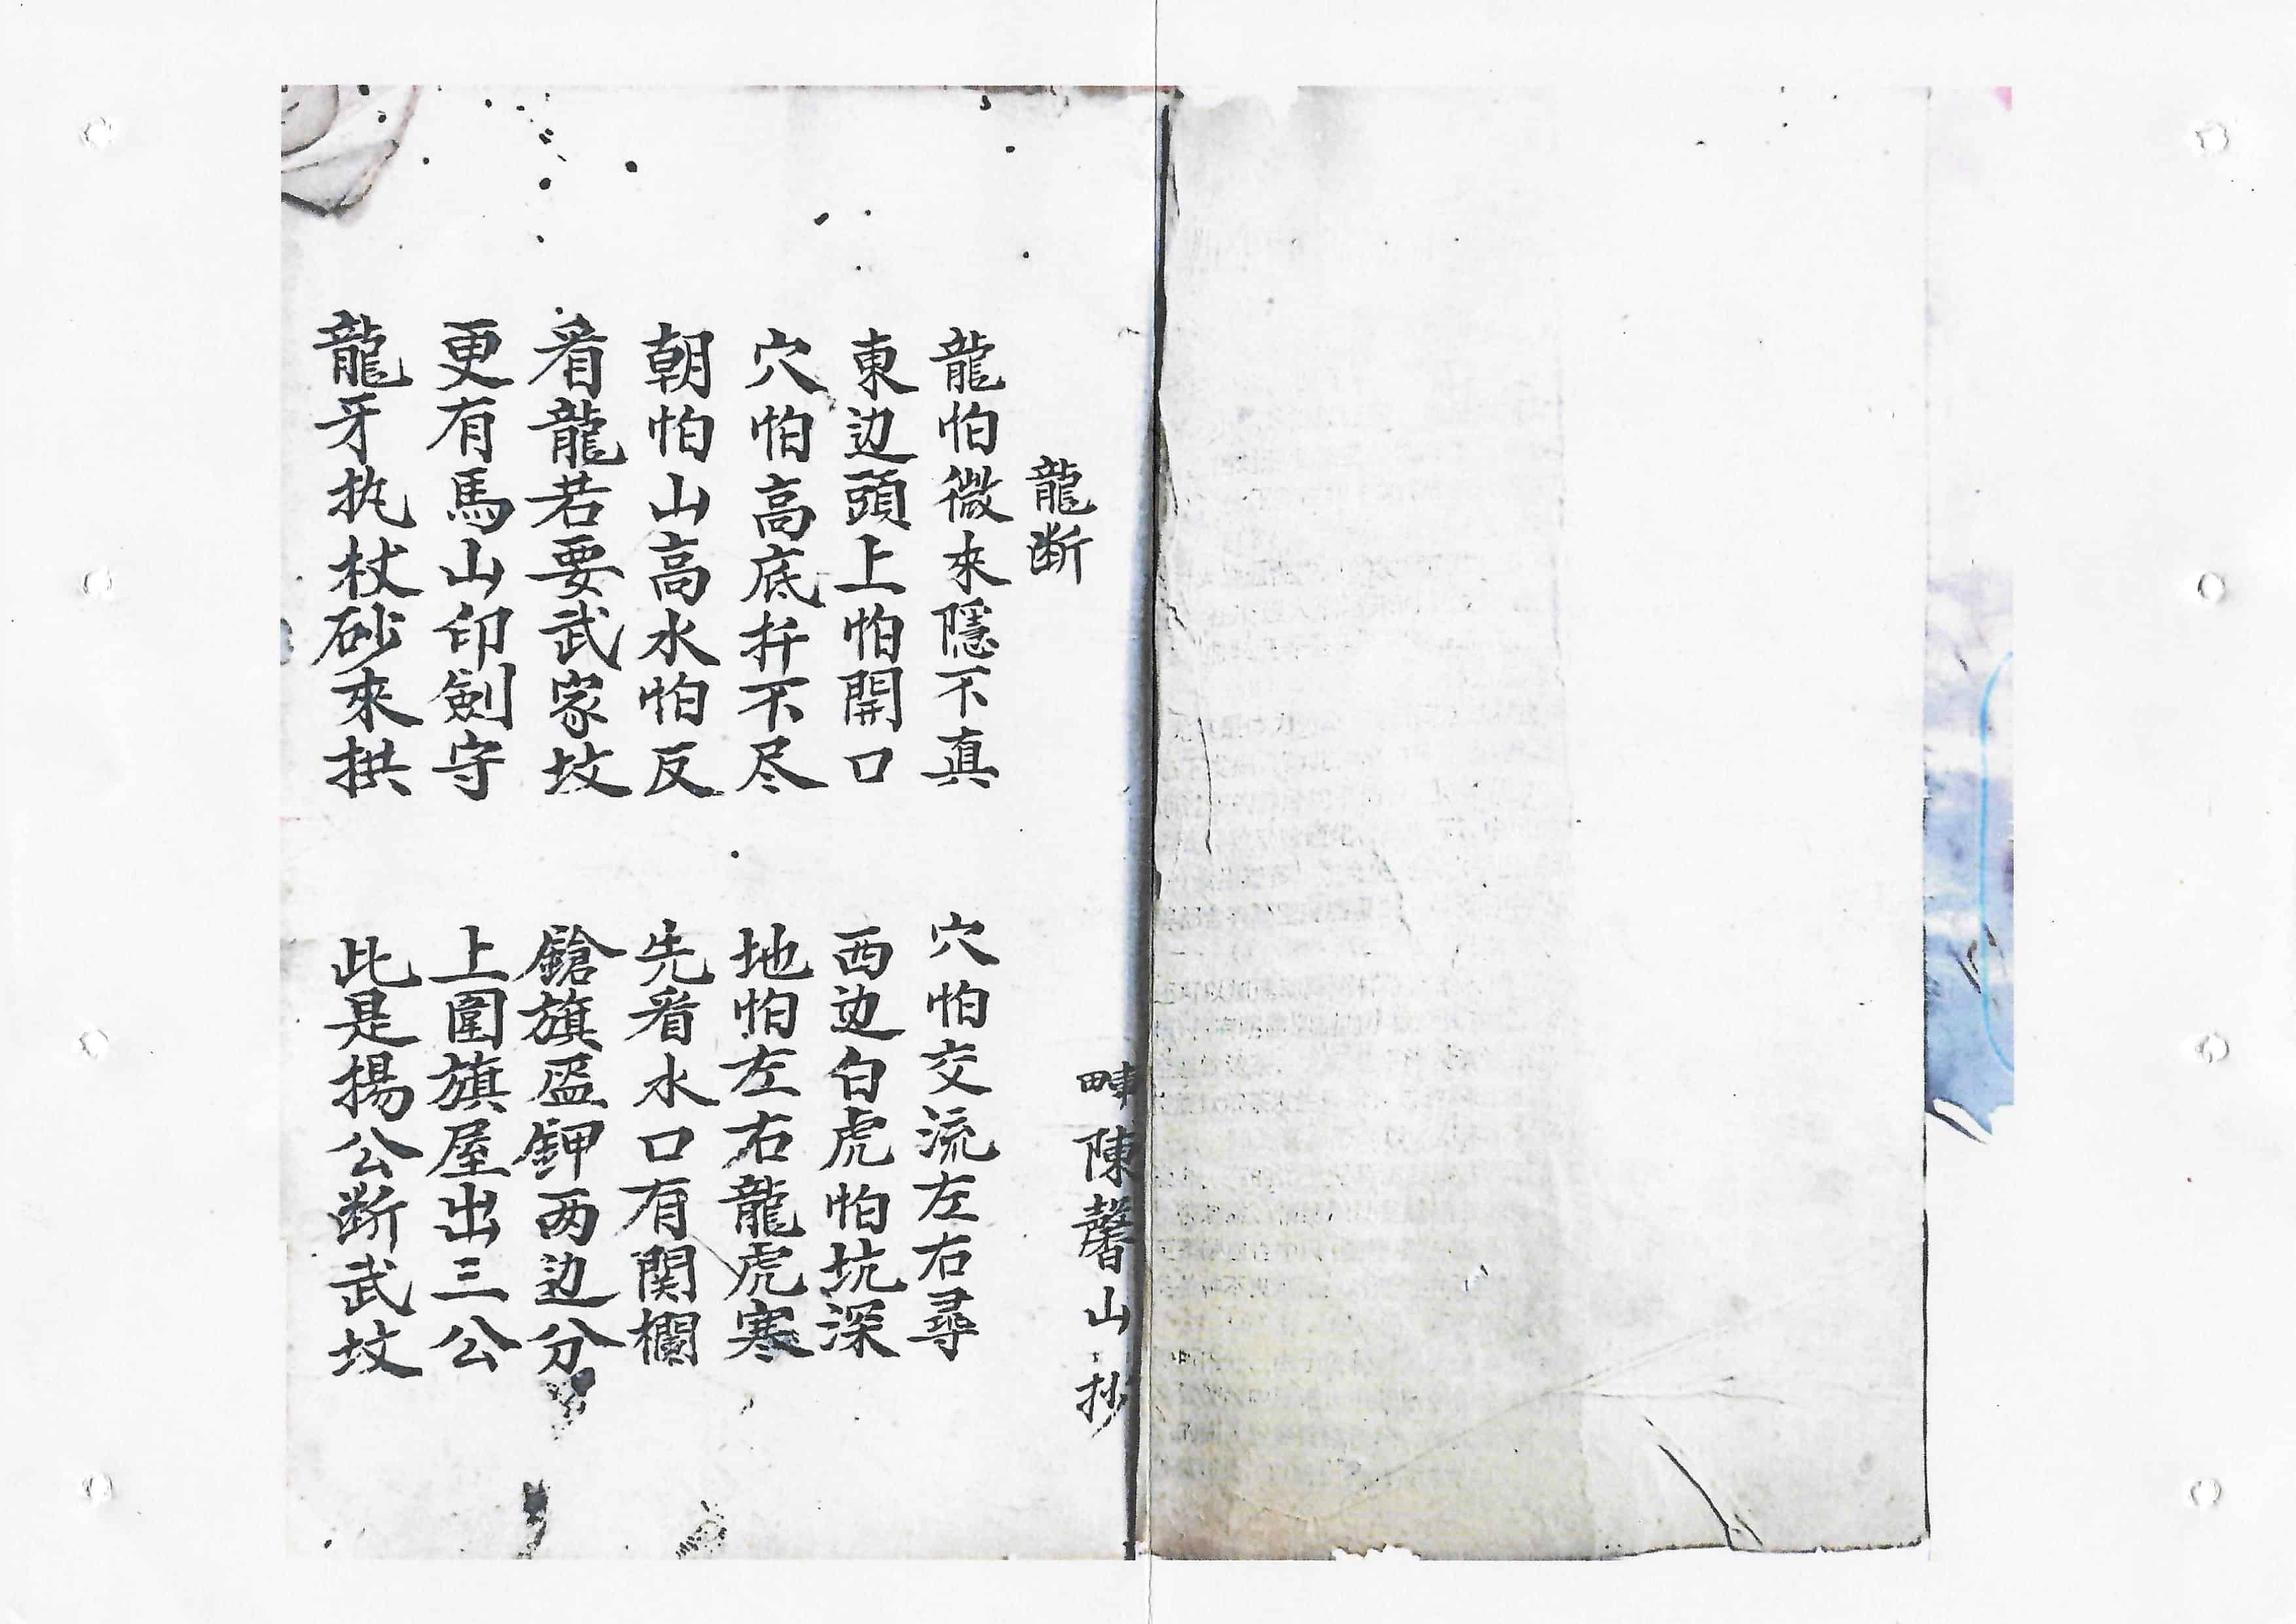 陳馨山抄
龍断
龍怕微來隱不真 穴怕交流左右尋
東边頭上怕開口 西边白虎怕坑深
穴怕高底扦不尽 地怕左右龍虎寒
朝怕山高水怕反 先看水口有関欄
看龍若要武家坟 鎗旗盔鉀两边分
更有馬山印劍守 上圍旗屋出三公
龍牙执杖砂來拱 此是楊公断武坟